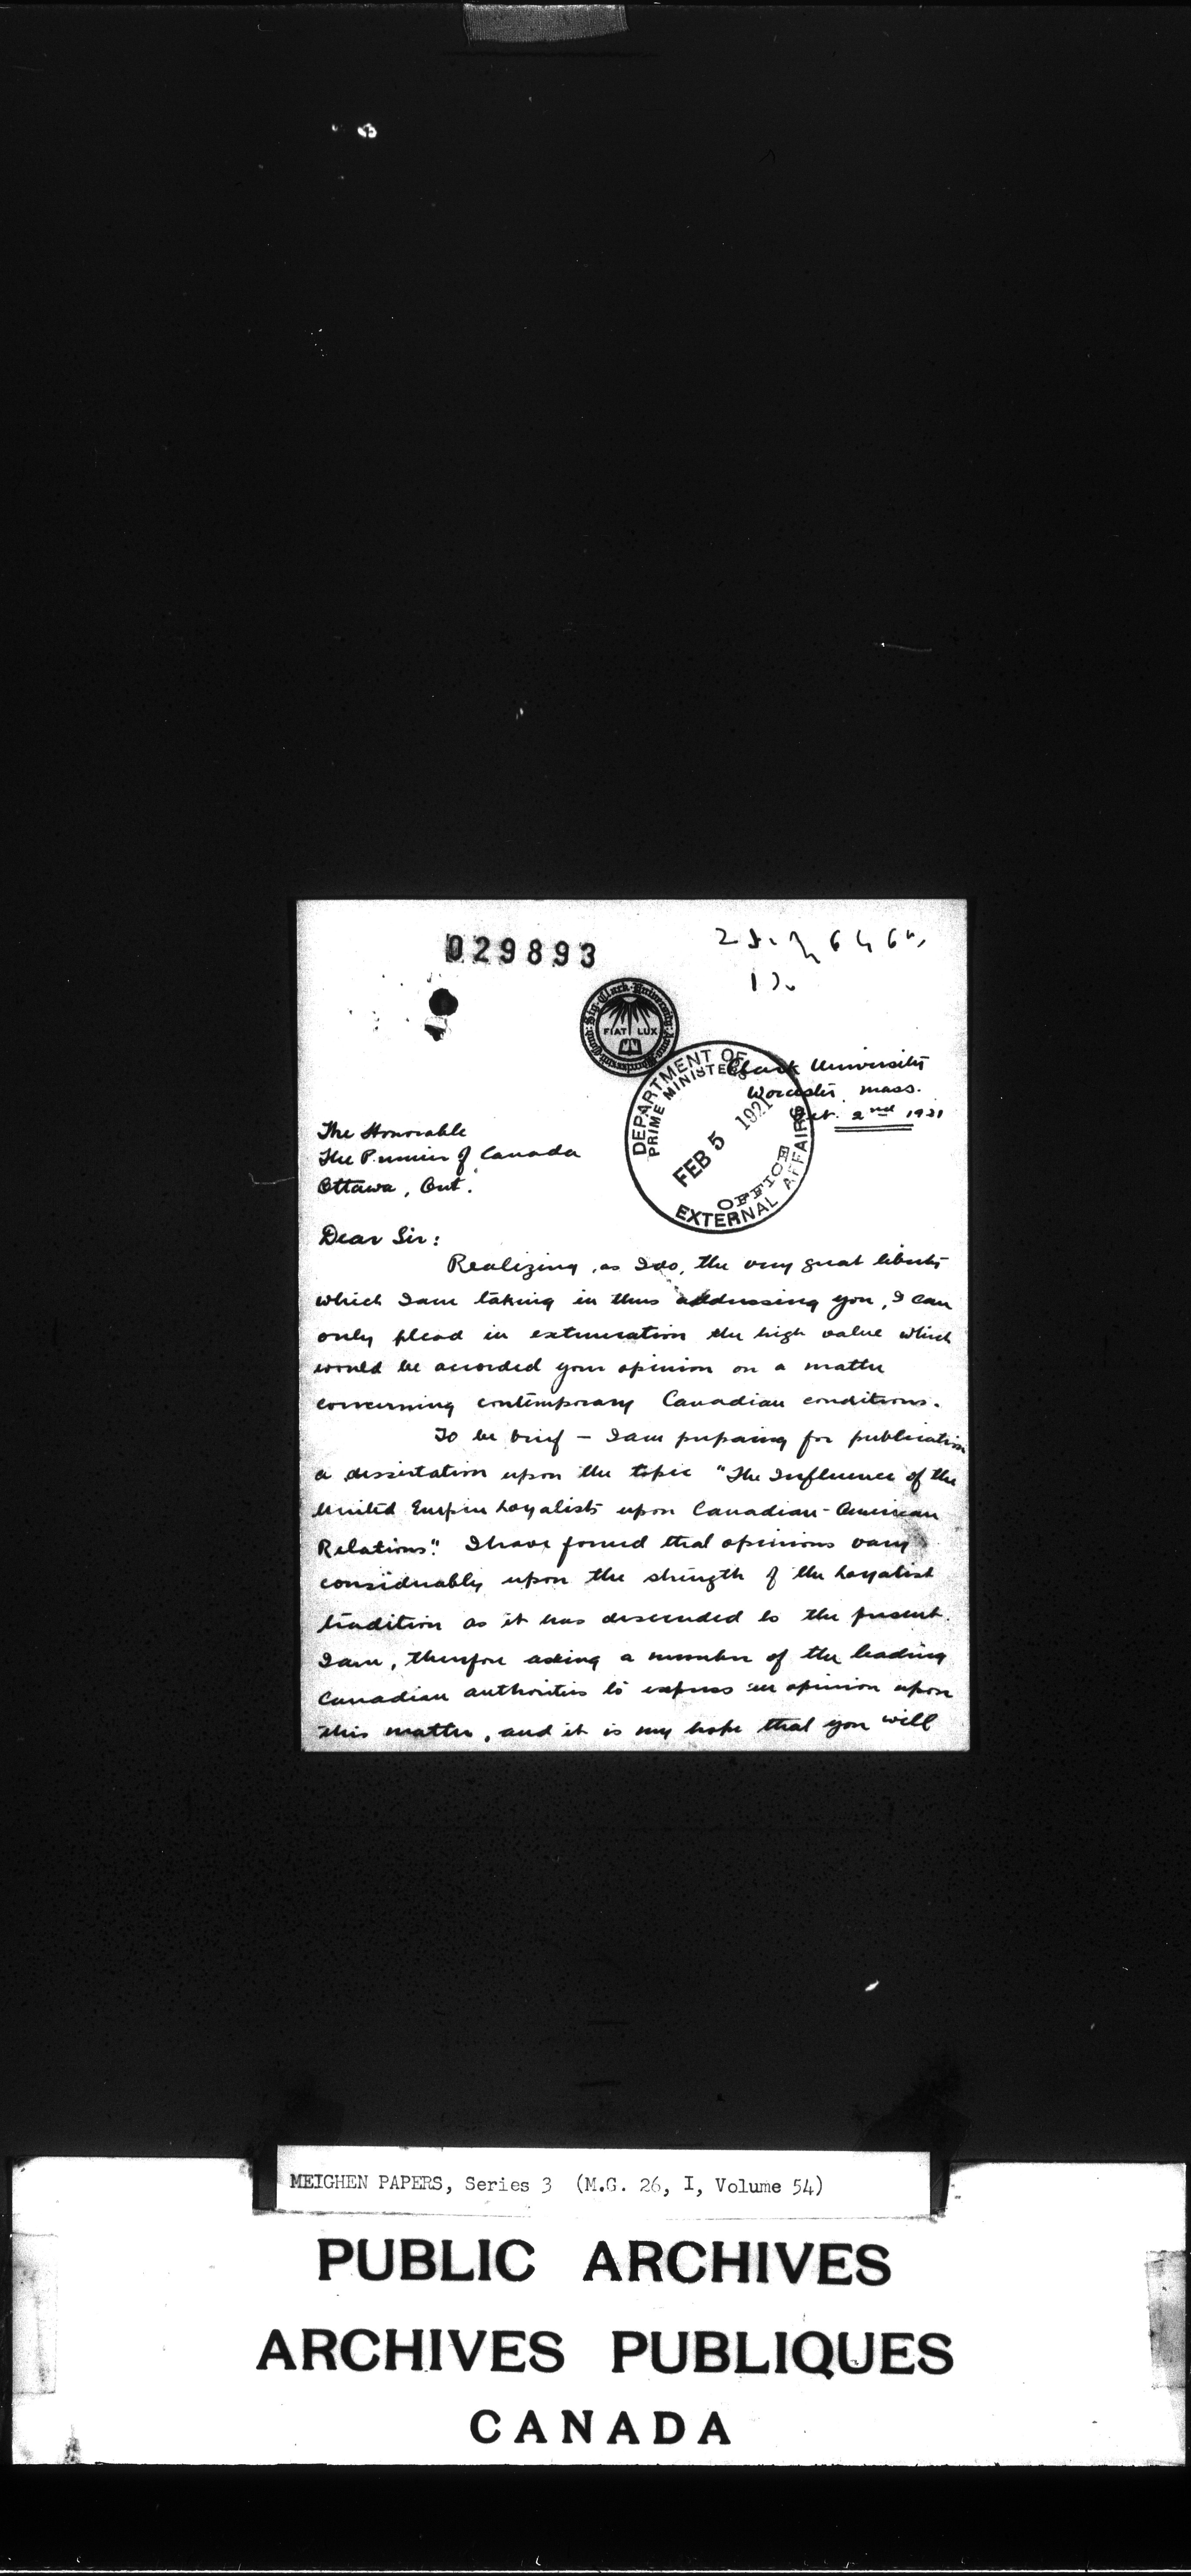 029893
FIAT LUX
DEPARTMENT OF
PRIME MINISTER'S
FEB 5 1921
OFFICE
EXTERNAL AFFAIRS
Clark University
Worcester, Mass.
2nd 1921
The Honorable
The Premier of Canada
Ottawa, Ont.
Dear Sir:
Realizing, as I do, the very great liberty
which I am taking in thus addressing you, I can
only plead in extenuation the high value which
would be accorded your opinion on a matter
concerning contemporary Canadian conditions.
To be brief – I am preparing for publication
a dissertation upon the topic "The Influence of the
United Empire Loyalists upon Canadian-American
Relations". I have found that opinions vary
considerably upon the strength of the Loyalist
tradition as it has descended to the present.
I am, therefore asking a number of the leading
Canadian authorities to express an opinion upon
this matter, and it is my hope that you will
MEIGHEN PAPERS, Series 3 (M.G. 26, I, Volume 54)
PUBLIC ARCHIVES
ARCHIVES PUBLIQUES
CANADA